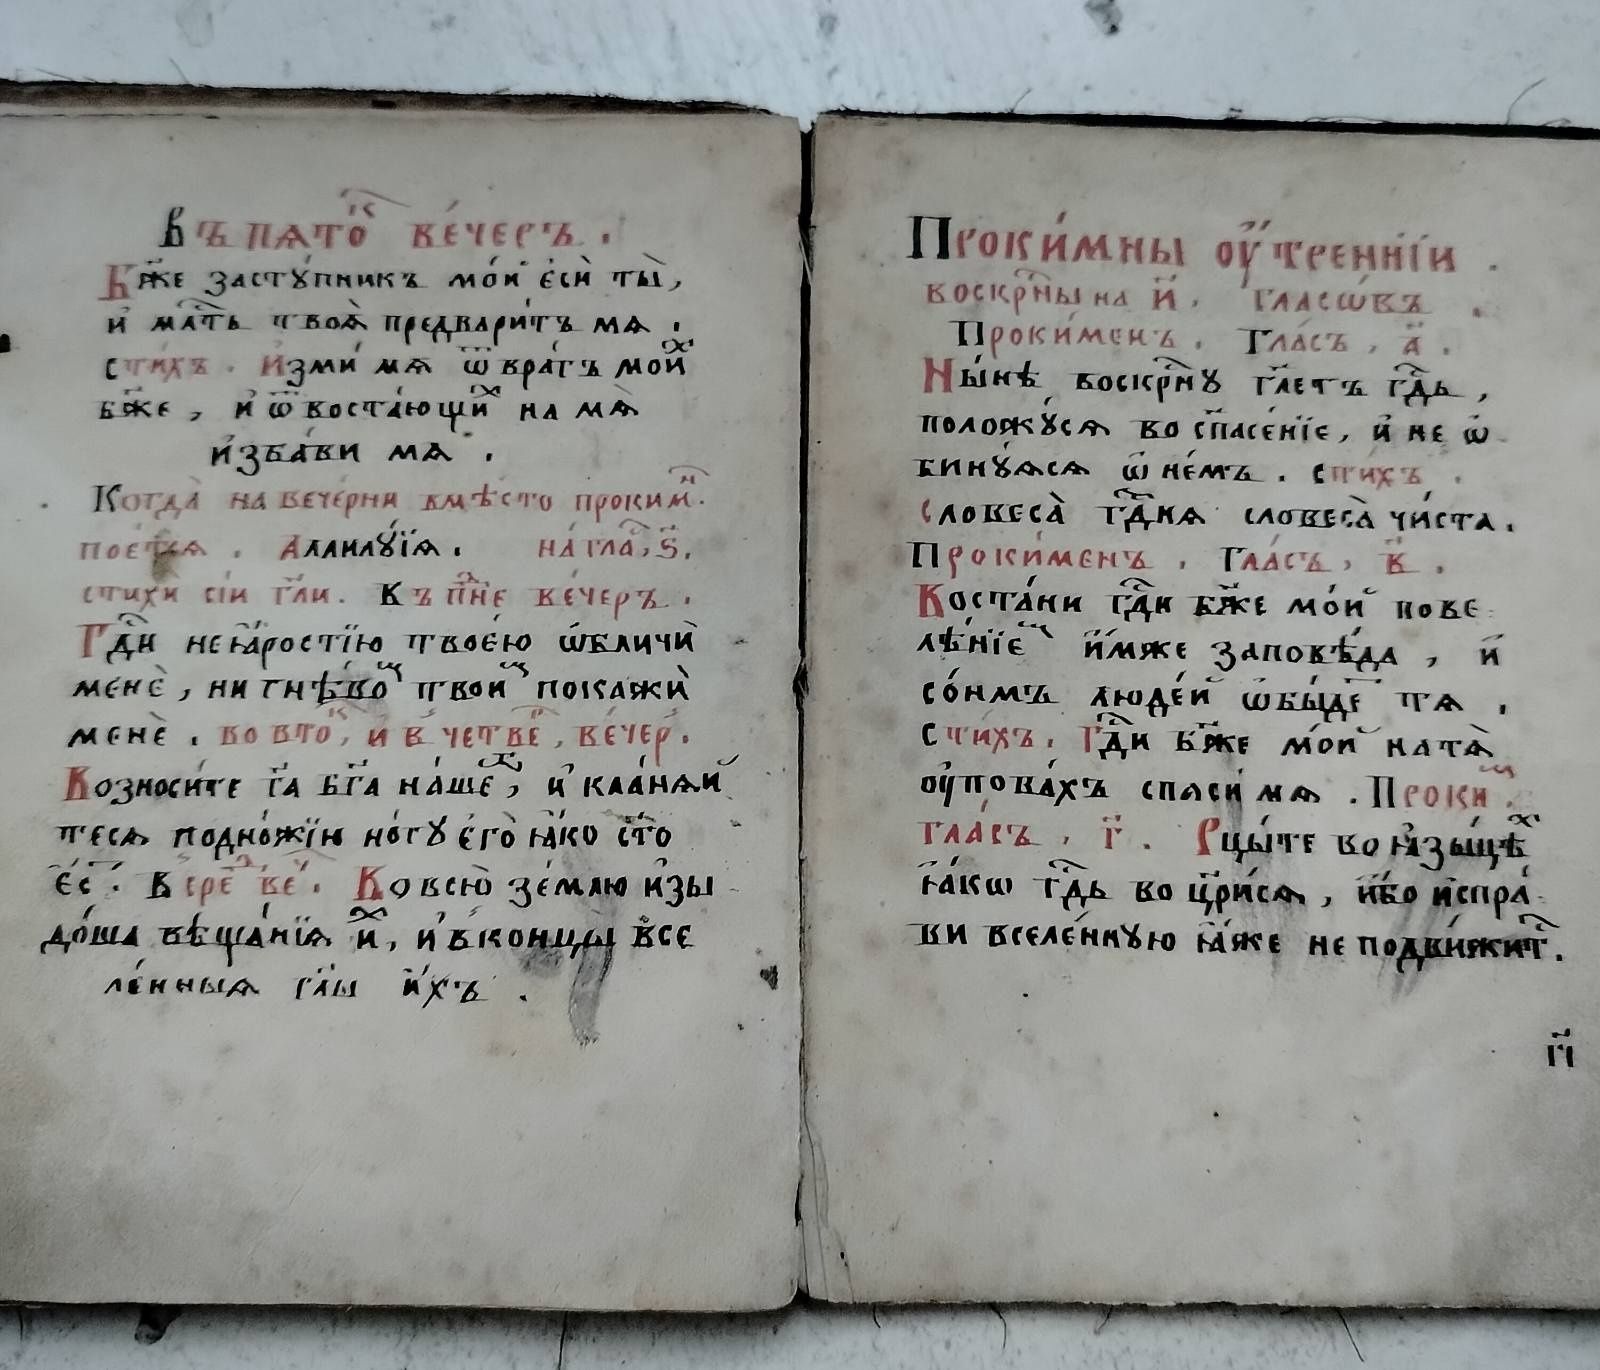 Въ пято҇к ве́черъ .
Бж҃е застꙋ́пникъ мо́й є҆сѝ ты̀,
и҆ мл҃ть твоѧ̀ предвари́тъ мѧ .
сти́хъ . И҆зми́ мѧ ѿ вра́гъ мои҇х
бж҃е , и҆ ѿ воста́ющи҇х на мѧ̀
и҆зба́ви мѧ .
Когда̀ на вече́рни вмѣ́сто проки́м҇н .
пое́тсѧ . Аллилꙋ́їѧ . на́ гла҇с , ѕ҃ .
стихѝ сі́и гл҃и . Въ пн҃е ве́черъ .
Гд҃и не ꙗ҆́ростїю твое́ю ѡ҆бличѝ
менѐ , ни гнѣ́во҇м твои҇м покажѝ
менѐ . во вто҇к , и҆ в четве҇к , ве́чер .
Возноси́те гд҃а бг҃а на́ше҇г , и҆ кла́нѧй
тесѧ подно́жїю но́гꙋ є҆гѡ̀ ꙗ҆́кѡ ст҃о
є҆́с҇т . В сре҇д ве́҇ч . Во всю̀ зе́млю и҆зы
до́ша вѣща́нїѧ и҇х , и҆ в концы̀ все
ле́нныѧ гл҃ы и҆́хъ .
Проки́мны ᲂу҆́тренні́и
воскр҃ны на и҃ . гласѡ́въ .
Проки́менъ . Гла́съ , а҃ .
Ны́нѣ воскр҃нꙋ гл҃етъ гд҃ь ,
положꙋ́сѧ во сп҃асе́нїе , и҆ не ѡ҆
бинꙋ́ѧсѧ ѡ҆ не́мъ . сти́хъ .
словеса̀ гд҃нѧ словеса̀ чи́ста .
Проки́менъ . Гла́съ , в҃ .
Воста́ни гд҃и бж҃е мо́й пове
лѣ́нїе҇м и҆́мже заповѣ́да , и҆
со́нмъ люде́й ѡ҆бы́де҇т тѧ .
сти́хъ . Гд҃и бж҃е мо́й на тѧ̀
ᲂу҆пова́хъ спаси́ мѧ . Проки҇м .
гла́съ , г҃ . Рцы́те во ꙗ҆зы́цѣ҇х
ꙗ҆́кѡ гд҃ь во цр҃и́сѧ , и҆́бо и҆спра́
ви вселе́ннꙋю ꙗ҆́же не подви́жи҇т .
г҃і